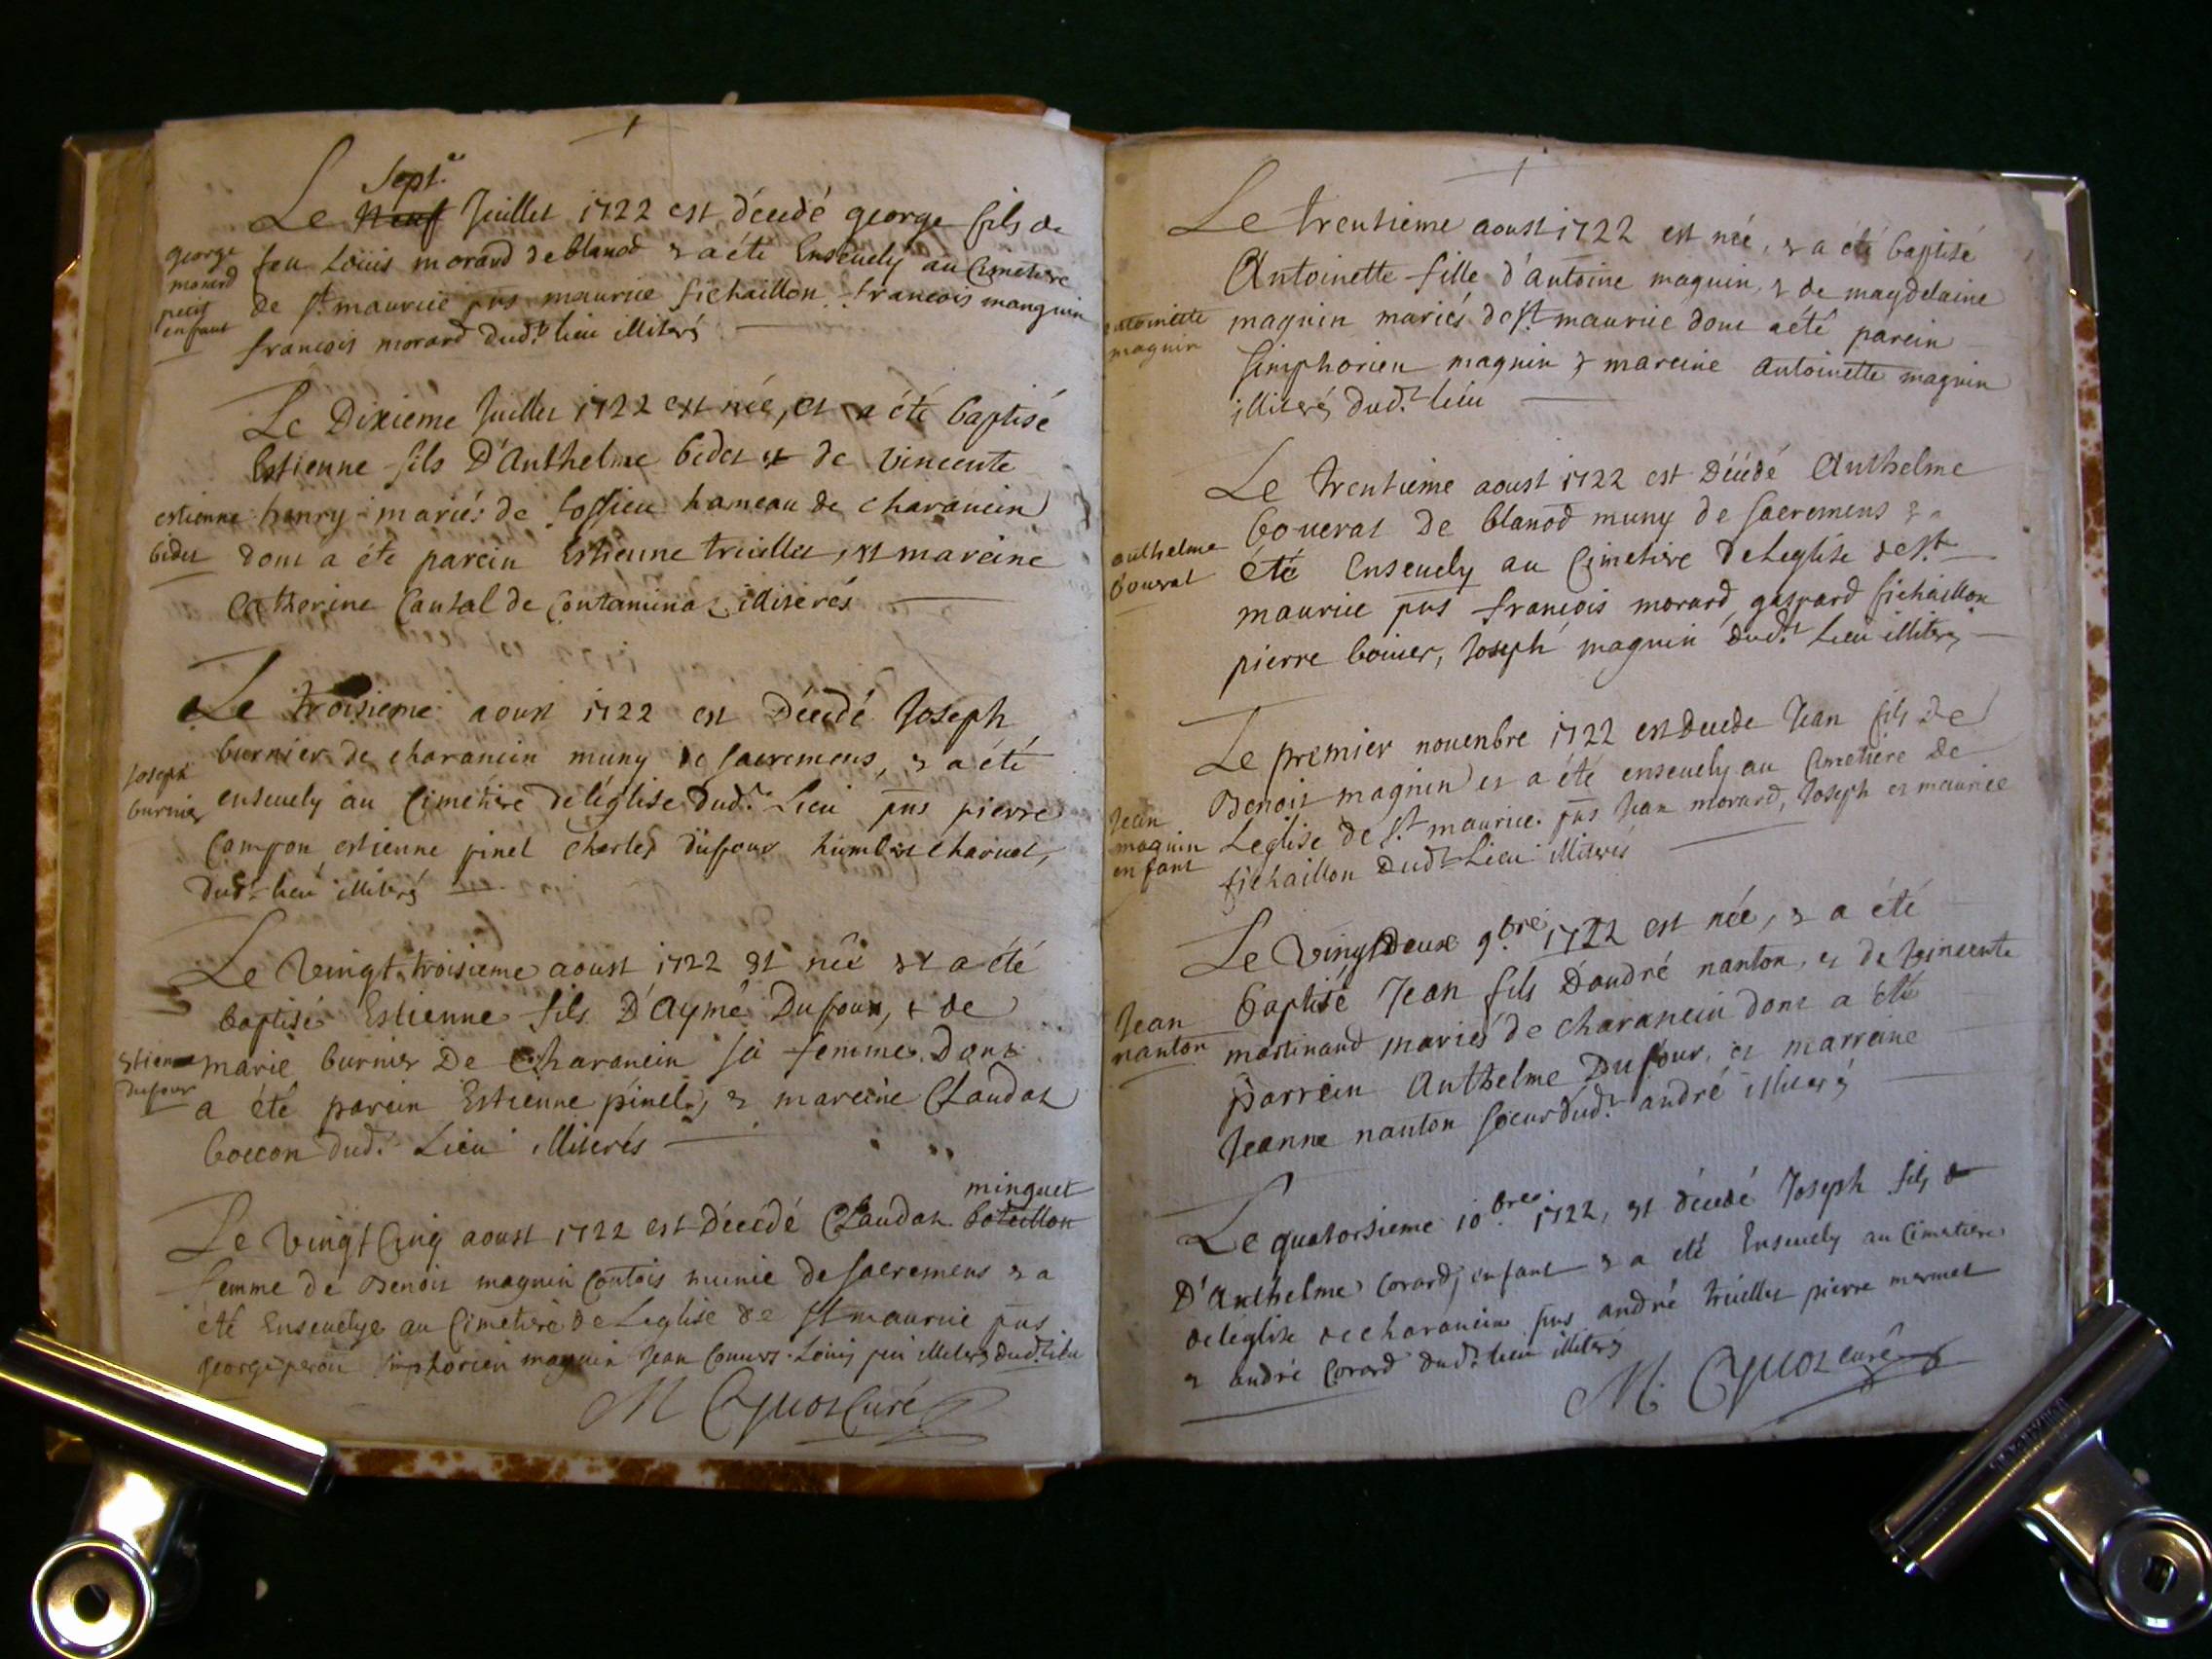 Sept.e
Le Neuf Juillet 1722 est décédé george fils de
feu Loüis morard de blanod & a éte Enseuely au Cimetiere
de St. maurice pns maurice fichaillon francois manguin
francois morard dud.t lieu illiterés
george
morard
petit
enfant
Le Dixiéme Juillet 1722 est née, et a été baptisé
Estienne fils D'Anthelme bidet et de Vincente
henry mariés de fossieu hameau de charancin
dont a éte parein Estienne treillet, et mareine
Catherine Cautal de Contamina illiterés
estienne
bidet
Le troisieme aoust 1722 est Décédé Joseph
burnier de charancin muny de sacremens, & a été
enseuely au Cimetiére de léglise dud.t Lieu pns pierre
Campon estienne pinel charles dufour humbert charuet,
dud.t lieu illiterés
Joseph
burnier
Le Vingt troisieme aoust 1722 est née et a été
baptisé Estienne fils D'Aymé Dufour, & de
marie burnier De Charancin sa femme. Dont
a été parein Estienne pinel, & mareine Claudat
boccon dud.t Lieu illiterés
Estienne
dufour
minguet
Le Vingt Cinq aoust 1722 est Décédé Claudat botaillon
femme de Benoit magnin Contois munie de sacremens & a
été Enseuelye au Cimetiere de Leglise de St maurice pns
george peron simphorien magnin Jean Illiterés dud.t lieu
M Cyuot Curé
Le trentiéme aoust 1722 est née, & a été baptisé
Antoinette fille d'antoine magnin, & de magdelaine
magnin mariés de St. maurice dont a été parein
simphorien magnin & mareine Antoinette magnin
illiterés dud.t lieu
antoinette
magnin
Le trentieme aoust 1722 est Décédé Anthelme
bouerat De blanod muny de sacremens & a
été Enseuely au Cimetiere De Leglise de St.
maurice pns francois morard gaspard fichaillon
pierre bouier, Joseph magnin dud.t Lieu illiterés
anthelme
bouerat
Le premier nouenbre 1722 est Decede Jean fils de
Benoit magnin et a été enseuely au Cimetiere De
Leglise de St maurice pns Jean morard, Joseph et maurice
fichaillon Dud.t Lieu illiterés
Jean
magnin
enfant
Le Vingt Deux 9.bre 1722 est née, & a été
baptisé Jean fils D'andré nanton, et de Vincente
martinand mariés de charancin dont a été
parrein Anthelme Dufour, et marreine
Jeanne nanton soeur dud.t andré illiterés
Jean
nanton
Le quatorsieme 10.bre 1722, est décedé Joseph fils de
D'Anthelme Corard, enfant & a eté Enseuely au Cimetiere
de léglise de charancin pns andré treillet pierre mermet
& andré Corard dud.t lieu illiterés
M. Cyuot curé